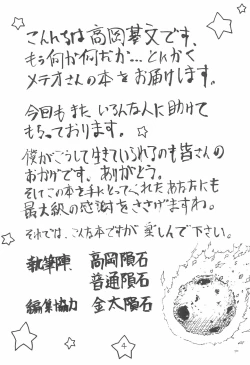 こんんちは高岡基文です、
もう何が何だか…とにかく
メテオさんの本をお届けします。
今回もまた いろんな人に助けて
もらっております。
僕がこうして生きていられるのも皆さんの
おかげです、ありがとう。
そしてこの本を手にとってくれたあなたにも
最大級の感謝をささげますわ。
それでは、こんな本ですが 楽しんで下さい。
執筆陣 高岡隕石
普通隕石
編集協力 金太隕石
4